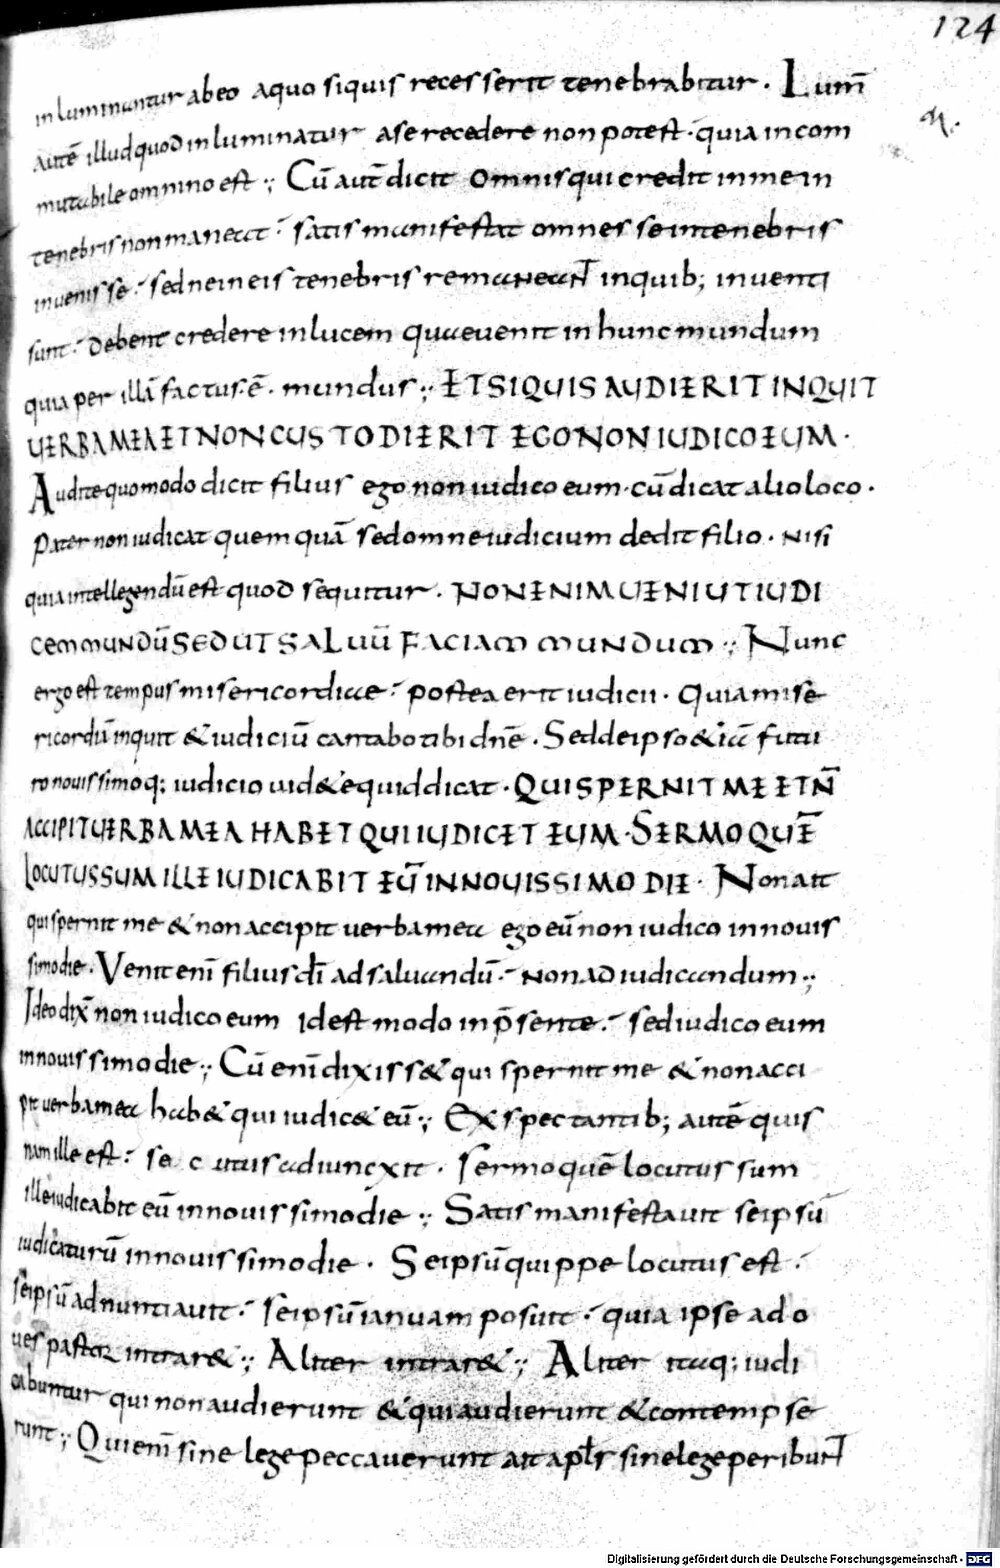 124
inluminantur abeo aquo siquis recesserit tenebrabitur. Lum̄
autē illud quod inluminatur ase recedere non potest. quia incom
mutabile omnino est; Cū aut̄ dicit omnis qui credit in me in
tenebris non maneat; satis manifestat omnes se in tenebris
invenisse; sed ne in eis tenebris remaneant inquib; inventi
sunt; debent credere in lucem quae venit in hunc mundum
quia per illā factus ē. mundus; ET SI QUIS AUDIERIT INQUIT
UERBA MEA ET NON CUSTODIERIT EGO NON IUDICO EUM.
Audite quomodo dicit filius ego non iudico eum. cū dicat alio loco.
Pater non iudicat quem quā sed omne iudicium dedit filio. Nisi
quia intellegendū est quod sequitur. NON ENIM UENI UT IUDI
CEM MUNDŪ SED UT SALUŪ FACIAM MUNDUM; Nunc
ergo est tempus misericordiae; postea erit iudicii. Quia mise
ricordiā inquit & iudiciū cantabo tibi dn̄e. Sed de ipso & iā futu
ro novissimoq; iudicio uid& e quid dicat. QUI SPERNIT ME ET N̄
ACCIPIT UERBA MEA HABET QUI IUDICET EUM. SERMO QUĒ
LOCUTUS SUM ILLE IUDICABIT EŪ IN NOUISSIMO DIE. Non ait
qui spernit me & non accipit uerba mea ego eū non iudico in novis
simo die. Venit enī filius dī ad saluandū; non ad iudicandum;
Ideo dix̄ non iudico eum id est modo in p̄sente; sed iudico eum
in novissimo die; Cū enī dixiss& qui spernit me & non acci
pit uerba mea hab& qui iudic& eū; Exspectantib; autē quis
nam ille est; secutus adiunxit. Sermo quē locutus sum
ille iudicabit eū in novissimo die; Satis manifestauit seipsū
iudicaturū in novissimo die. Seipsū quippe locutus est;
seipsū adnuntiauit; seipsū ianuam posuit; quia ipse ad o
ues pastor intrar&; Aliter intrar&; Aliter itaq; iudi
cabuntur qui non audierunt & qui audierunt & contempse
runt; Qui enī sine lege peccauerunt ait apl̄s sine lege peribunt
Digitalisierung gefördert durch die Deutsche Forschungsgemeinschaft - DFG